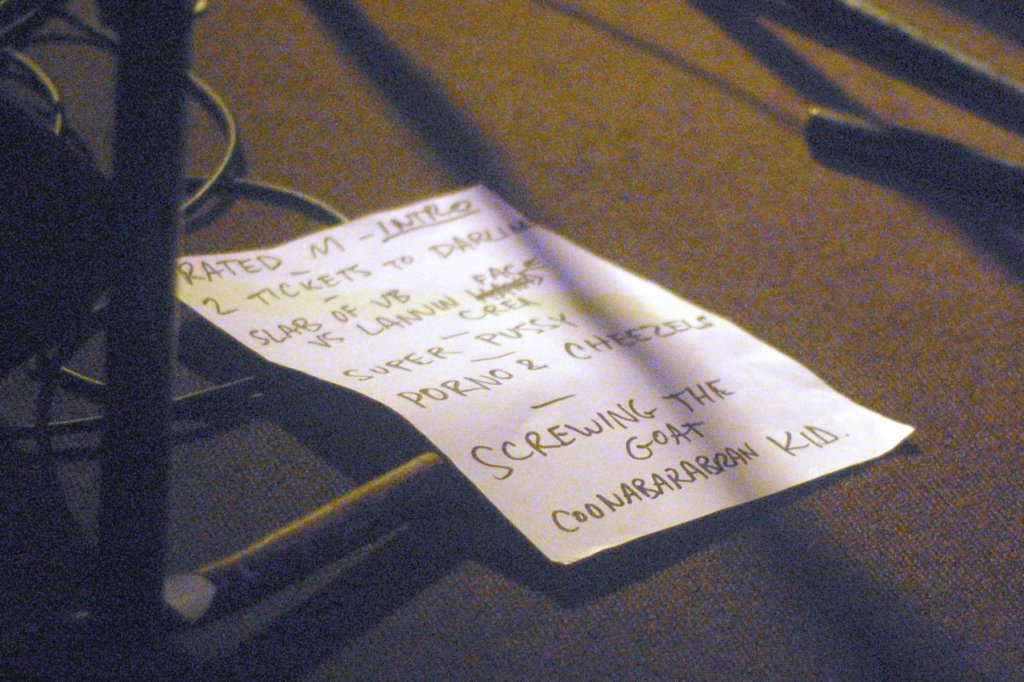 RATED M - INTRO
2 TICKETS TO DARLIN
SLAB OF VB
VS LANNIN FACE
CREA
SUPER PUSSY
PORNO & CHEEZELS
SCREWING THE
GOAT
COONABARABRAN KID.